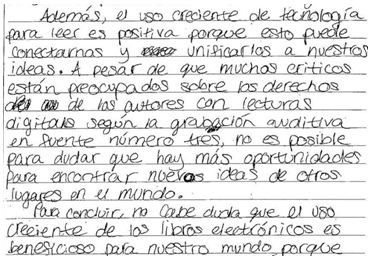 Además, el uso creciente de tecnología
para leer es positiva porque esto puede
conectarnas y unificarlos a nuestros
ideas. A pesar de que muchos criticos
están preocupados sobre los derechos
de los autores con lecturas
digitals según la grabación auditiva
en fuente número tres, no es posible
para dudar que hay más oportunidades
para encontrar nuevas ideas de otros
lugares en el mundo.
Para concluir, no cabe duda que el uso
creciente de los libros electrónicos es
beneficioso para nuestro mundo porque